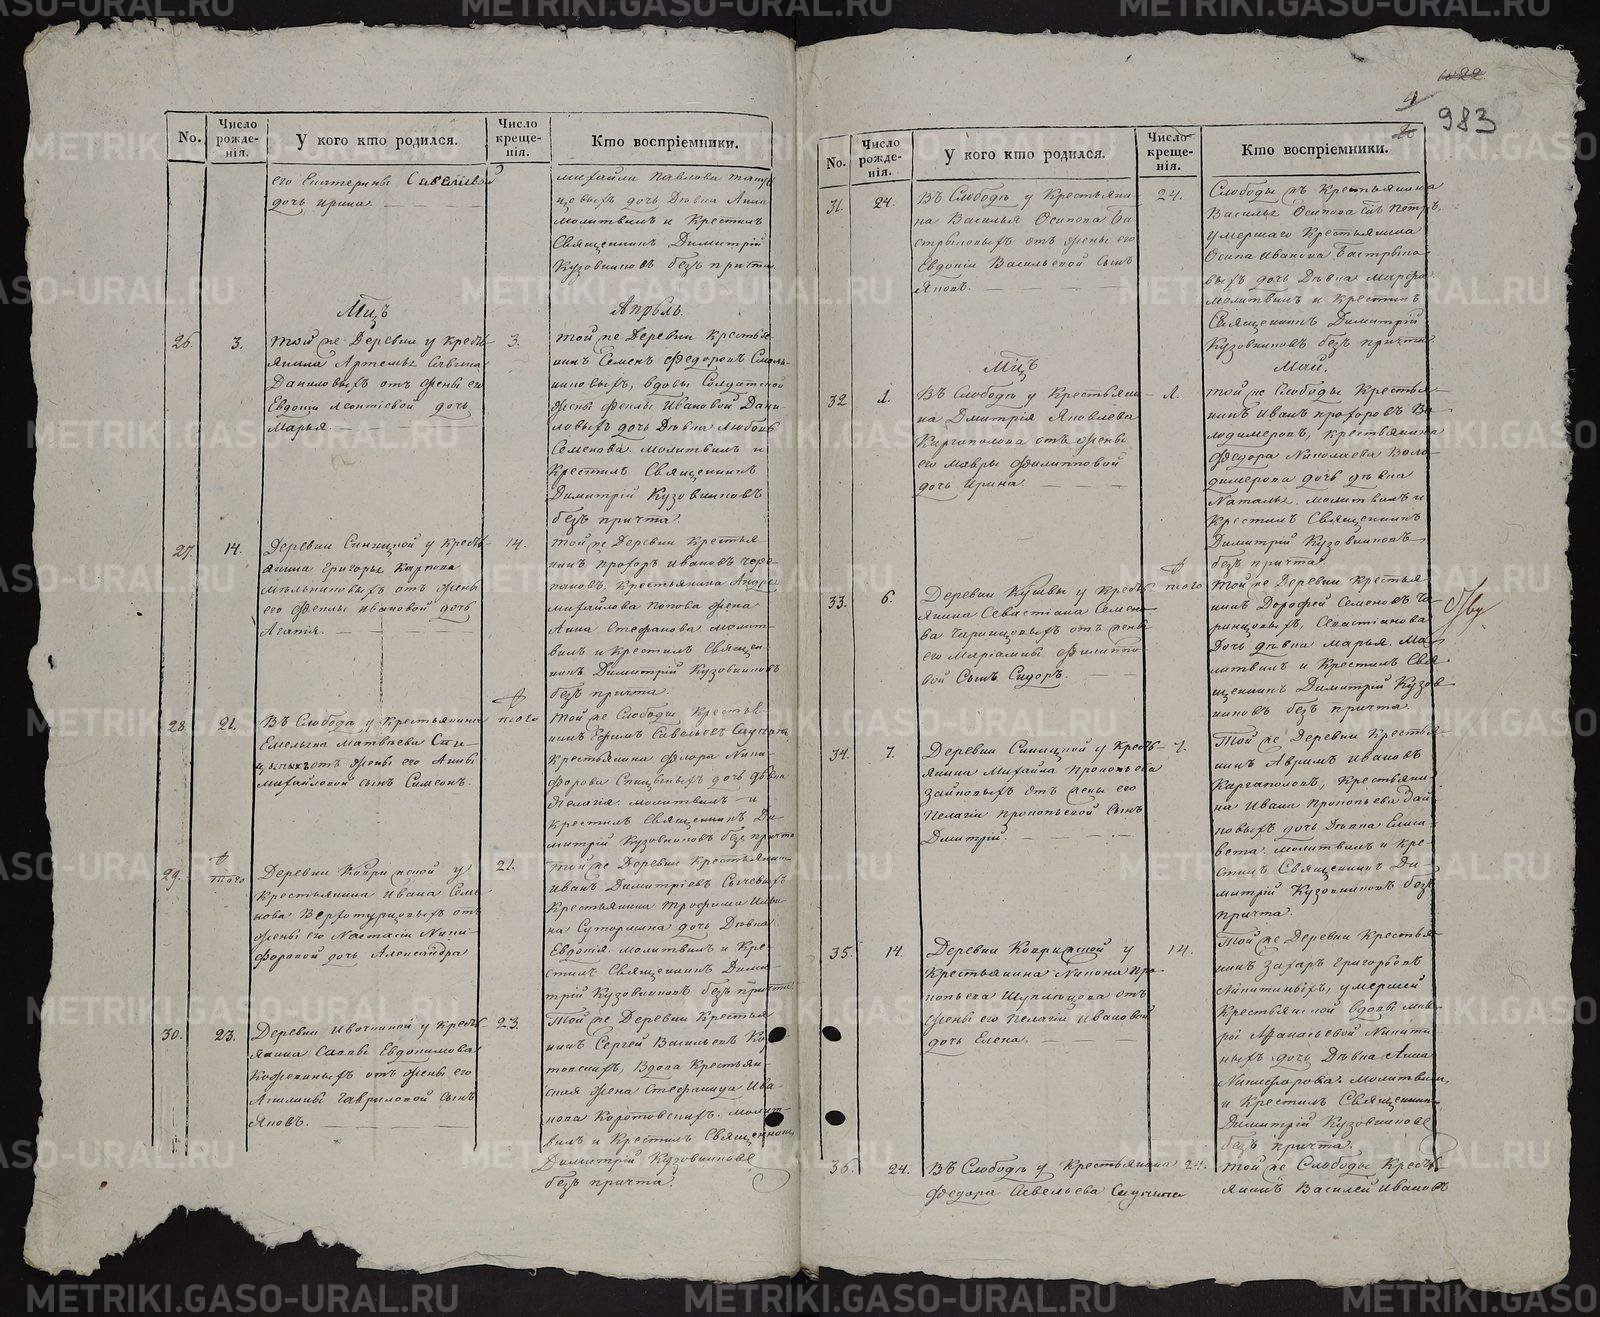 1022
4
983
No.
Число рожде-нія.
У кого кто родился.
Число креще-нія.
Кто воспріемники.
его Екатерины Савеліевой
дочь Ирина.
Михайла Павлова
дочь Дѣвка Анна
молитвилъ и Крестилъ
Священникъ Димитрій
Кузовниковъ безъ причта.
Мцъ
Апрѣль.
26. 3. 3.
той же Деревни у Кресть-
янина Артемья Саввина
Даниловыхъ отъ жены его
Евдокіи Леонтіевой дочь
Марья
той же Деревни Кресть-
нинъ Семенъ Федоровъ
вдовы Солдатской
жены Феклы Ивановой Дани-
ловыхъ дочь Дѣвка Любовь
Семенова. Молитвилъ и
Крестилъ Священникъ
Димитрій Кузовниковъ
безъ причта.
27. 14. 14.
Деревни Синицной у Кресть-
янина Григорья Карпова
Мѣльниковыхъ отъ жены
его Феклы Ивановой дочь
Агапія.
той же Деревни Кресть-
нинъ Прохоръ Ивановъ Чере-
пановъ, Крестьянина Андрея
Михайлова Попова жена
Анна Стефанова. молит-
вилъ и Крестилъ Священ-
никъ Димитрій Кузовниковъ
безъ причта.
28. 21. того
Въ Слободѣ у Крестьянина
Емельяна Матвѣева Спи-
цыныхъ отъ жены его Анны
Михайловой сынъ Симеонъ.
той же Слободы Кресть-
нинъ Ефимъ Савельевъ
Крестьянина Флора Ники-
форова Спицыныхъ дочь дѣвка
Пелагія. молитвилъ и
крестилъ Священникъ Ди-
митрій Кузовниковъ безъ причта
29. того 21.
Деревни у
Крестьянина Ивана Семе-
нова Верхотурцовыхъ отъ
жены его Настасіи Ники-
форовой дочь Александра
той же Деревни Крестьянинъ
Иванъ Димитріевъ Сычевыхъ
Крестьянина Трофима Ильи-
на Сутормина дочь Дѣвка
Евдокія. молитвилъ и Кре-
стилъ Священникъ Дими-
трій Кузовниковъ безъ причта
30. 23. 23.
Деревни Ивочкиной у Кресть-
янина Саввы Евдокимова
Кожевиныхъ отъ жены его
Акилины Гавриловой сынъ
Яковъ.
той же Деревни Кресть-
нинъ Сергей Васильевъ Ко-
товскихъ, вдова Крестьян-
ская жена Стефанида Ива-
нова Коротовскихъ. Молит-
вилъ и Крестилъ Священникъ
Димитрій Кузовниковъ
безъ причта.
No.
Число рожде-нія.
У кого кто родился.
Число креще-нія.
Кто воспріемники.
31. 24. 24.
Въ Слободѣ у Крестьяни-
на Василья Осипова Ба-
стрыковыхъ отъ жены его
Евдокіи Васильевой Сынъ
Яковъ.
Слободы съ Крестьянина
Василья Осипова сынъ Петръ,
умершаго Крестьянина
Осипа Иванова Бастрыко-
выхъ дочь Дѣвка Марфа.
молитвилъ и Крестилъ
Священникъ Димитрій
Кузовниковъ безъ причта.
Мцъ
Май.
32 1. 1.
Въ Слободѣ у Крестьяни-
на Дмитрія Яковлева
Каргаполова отъ жены
его Мавры Филипповой
дочь Ирина.
той же Слободы Крестья-
нинъ Иванъ Прохоровъ Во-
лодимеровъ, крестьянина
Федора Николаева Воло-
димерова дочь дѣвка
Наталья. молитвилъ и
Крестилъ Священникъ
Димитрій Кузовниковъ
безъ причта.
33. 6. того
Деревни Кушвы у Кресть-
янина Севастіана Семено-
ва отъ жены
его Маріамны Филиппо-
вой Сынъ Сидоръ.
той же Деревни Крестья-
нинъ Дорофей Семеновъ
Севастіанова
дочь дѣвка Марья. Мо-
литвилъ и Крестилъ Свя-
щенникъ Димитрій Кузов-
никовъ безъ причта.
34. 7. 7.
Деревни Синицной у Кресть-
янина Михайла Прокопьева
Зайковыхъ отъ жены его
Пелагіи Прокопьевой сынъ
Дмитрій.
Той же Деревни Крестья-
нинъ Аврамъ Ивановъ
Каргаполовъ, Крестьяни-
на Ивана Прокопьева Зай-
ковыхъ дочь Дѣвка Елиса-
вета. молитвилъ и Кре-
стилъ Священникъ Ди-
митрій Кузовниковъ безъ
причта.
35. 14. 14.
Деревни у
Крестьянина Никона Про-
копьева Шукльцова отъ
жены его Пелагіи Ивановой
дочь Елена.
Той же Деревни Крестья-
нинъ Захаръ Григорьевъ
Никитиныхъ, умершей
Крестьянской вдовы
Афанасьевой Никити-
ныхъ дочь Дѣвка Анна
Никифорова. Молитвилъ,
и Крестилъ Священникъ
Димитрій Кузовниковъ
безъ причта.
36. 24. 24.
Въ Слободѣ у Крестьянина
Федора Савельева
той же Слободы Кресть-
янинъ Василей Ивановъ